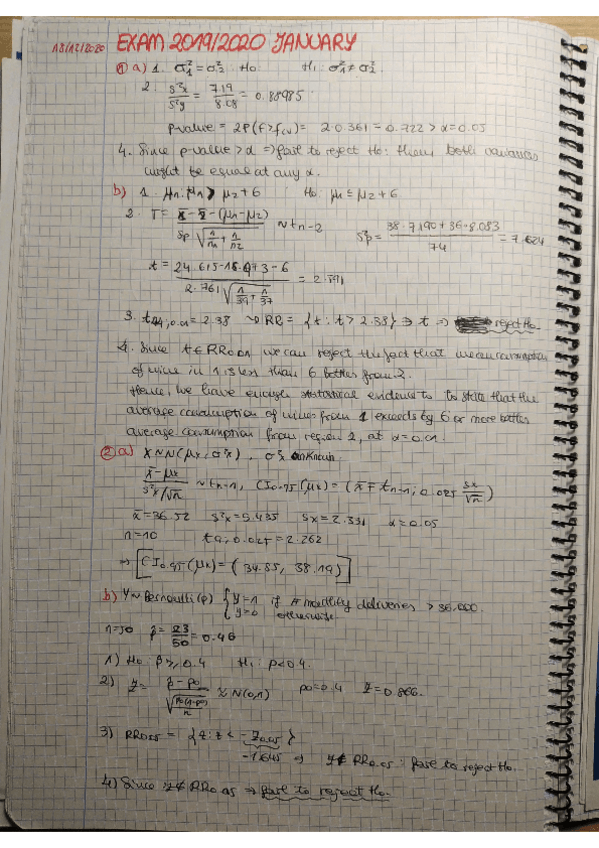 18/12/2020 EXAM 2019/2020 JANUARY
① a) 1. σ₁² = σ₂² : H₀ H₁ : σ₁² ≠ σ₂²
2. s²x / s²y = 7.19 / 8.08 = 0.88985
p-value = 2P(F>fcv) = 2·0.361 = 0.722 > α = 0.05
4. Since p-value > α ⇒ fail to reject H₀: then both variances
might be equal at any α.
b) 1. μ₁ > μ₂ + 6 H₀: μ₁ ≤ μ₂ + 6
2. T = x̄ - ȳ - (μ₁-μ₂) / Sp √(1/n₁ + 1/n₂) ~ tn-2 S²p = 38·7.190 + 36·8.083 / 74 = 7.624
t = 24.615 - 16.973 - 6 / 2.761 √(1/39 + 1/37) = 2.591
3. t74, 0.01 = 2.38 RR = {t : t > 2.38} ∋ t ⇒ reject H₀
4. Since t ∈ RR0.01 we can reject the fact that mean consumption
of wine in 1 is less than 6 bottles from 2.
Hence, we have enough statistical evidence to to state that the
average consumption of wine from 1 exceeds by 6 or more bottles
average consumption from region 2, at α = 0.01.
② a) X ~ N(μx, σ²x), σ²x unknown.
x̄ - μx / s²x/√n ~ tn-1, CI0.95(μx) = (x̄ ∓ tn-1; 0.025 sx/√n)
x̄ = 36.52 s²x = 5.435 sx = 2.331 α = 0.05
n = 10 t9, 0.025 = 2.262
⇒ [CI0.95(μx) = (34.85, 38.19)]
b) Y ~ Bernoulli(p) { y=1 if # monthly deliveries > 36.000.
y=0 otherwise
n=50 p̂ = 23/50 = 0.46
1) H₀: p ≥ 0.4 H₁: p < 0.4.
2) Z = p̂ - p₀ / √(p₀(1-p₀)/n) ≈ N(0,1) p₀ = 0.4 z = 0.866.
3) RR0.05 = {z : z < -z0.05}
-1.645 ⇒ z ∉ RR0.05 : fail to reject H₀.
4) Since z ∉ RR0.05 ⇒ fail to reject H₀.